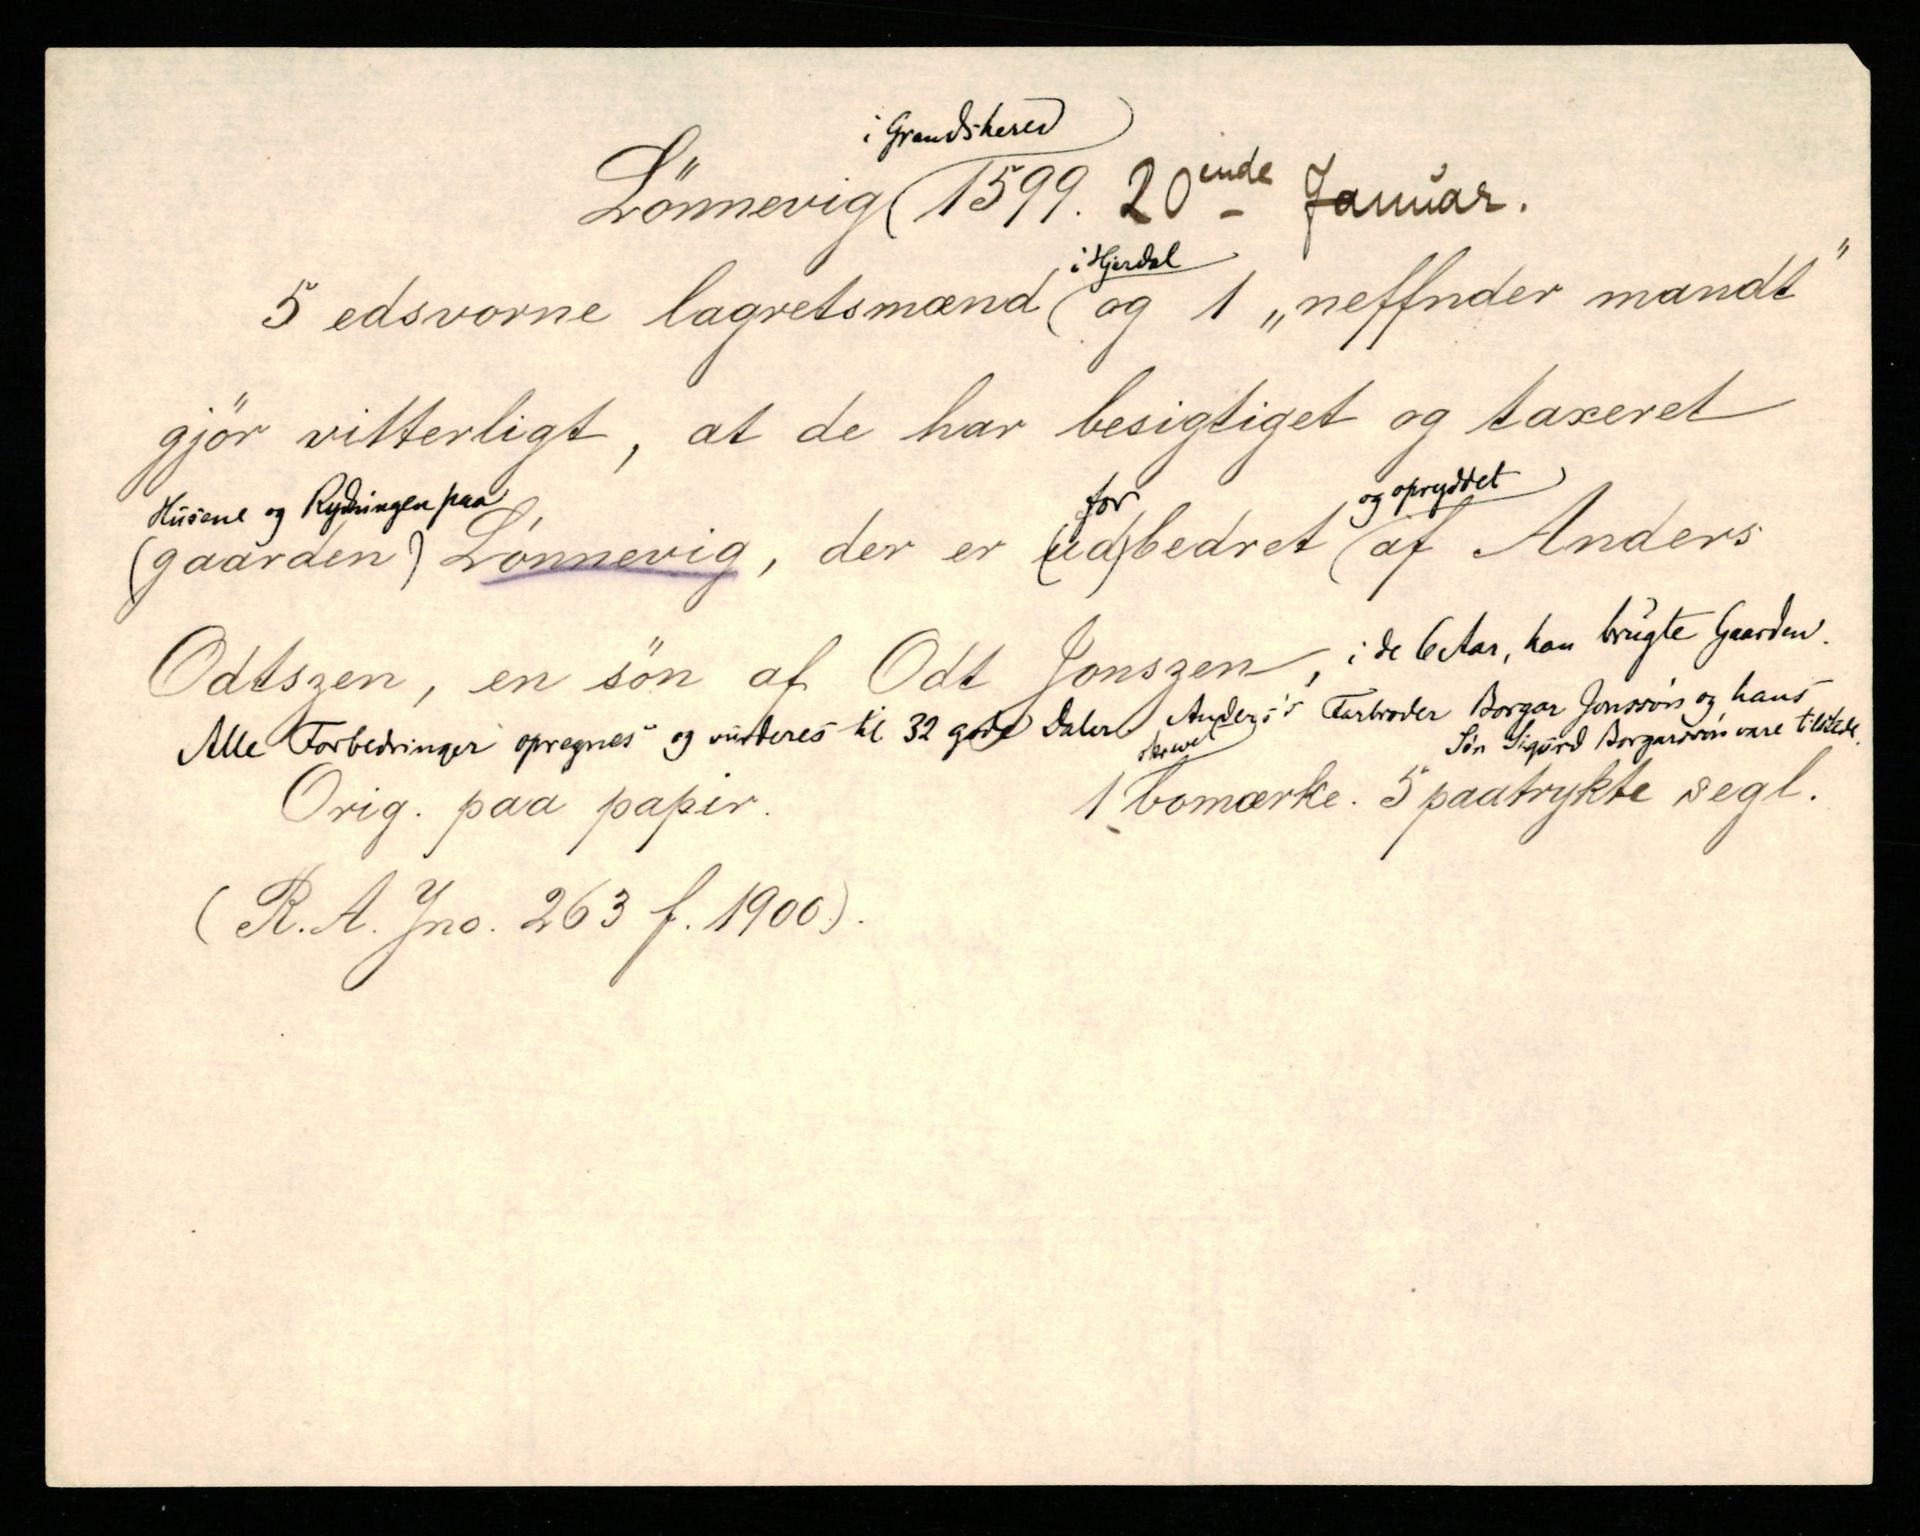 i Grandshered
Lönnevig (1599. 20inde Januar.
i Hjerdal
5 edsvorne lagretsmænd (og 1 „neffnder mandt"
gjör vitterligt, at de har besigtiget og taxeret
Husene og Rydningen paa for og opryddet
(gaarden) Lönnevig, der er (ud)bedret (af Anders
Odtszen, en sön af Odt Jonszen, i de 6 Aar, han brugte Gaarden.
Alle Forbedringer opregnes og vurderes til 32 gode Daler. Anders's Farbroder Borgar Jonssøn og hans
Søn Sigurd Borgarssøn vare tilstede.
Orig. paa papir. 1 bomærke. 5 paatrykte segl.
(R. A. Jno. 263 f. 1900).